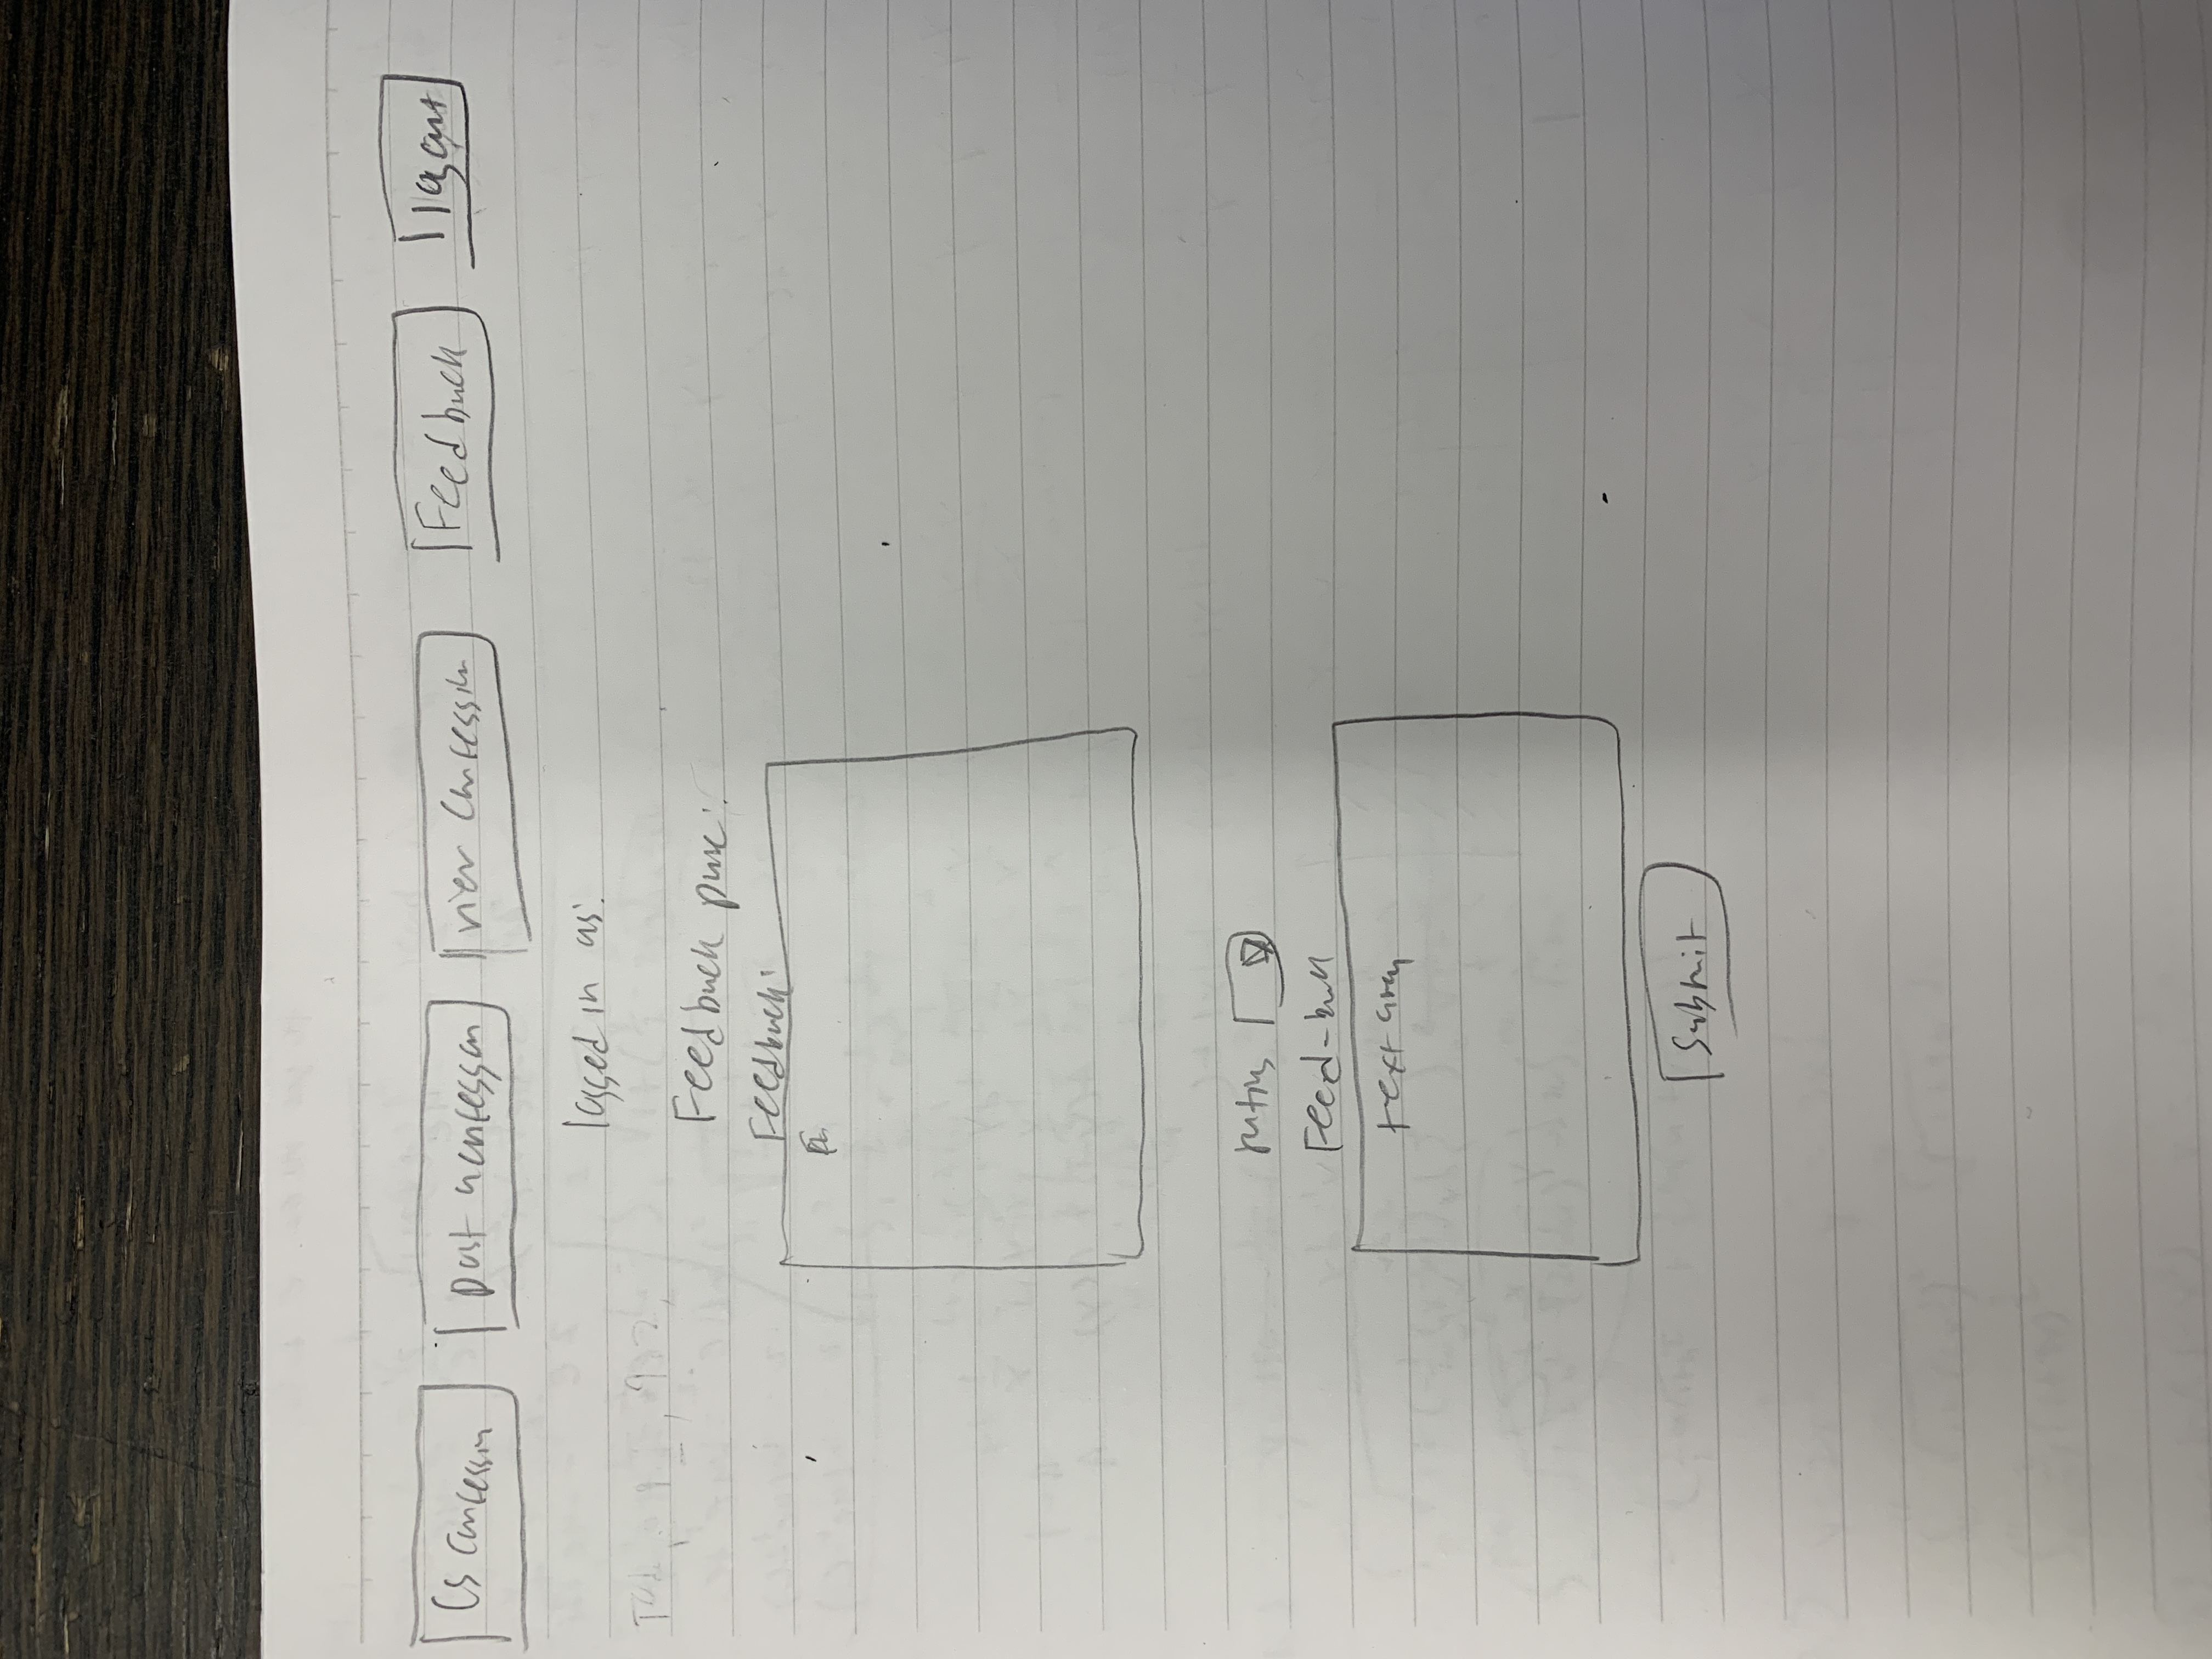 CS Confession Post a confession view Confession Feedback logout
logged in as:
Feedback page:
Feedback:
rating
Feed-back
text area
Submit